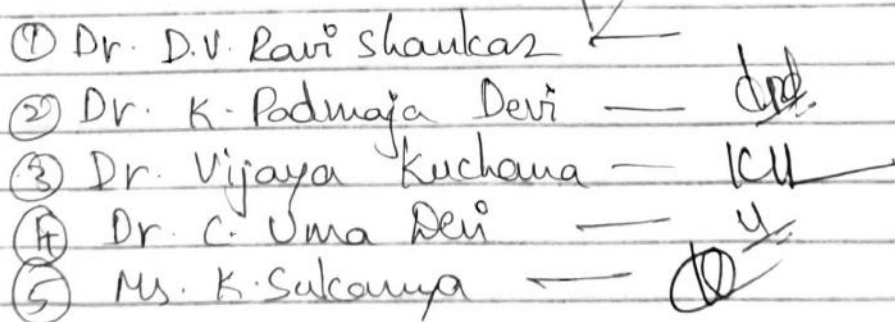 ① Dr. D.V. Ravi Shankar
② Dr. K. Padmaja Devi —
③ Dr. Vijaya Kuchana —
④ Dr. C. Uma Devi —
⑤ Ms. K. Sukanya —